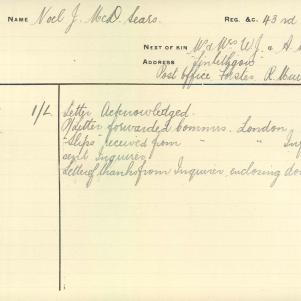 NAME Noel J. McD. Sears. REG. &C. 43rd
NEXT OF KIN Mr & Mrs W.J. & A
ADDRESS "Linlithgow"
Post Office Forster, R. Man
1/L. Letter Acknowledged.
O/Letter forwarded Commrs. London
"Slips" received from " " Inf
sent Inquirer
Letter of thanks from Inquirer, enclosing do